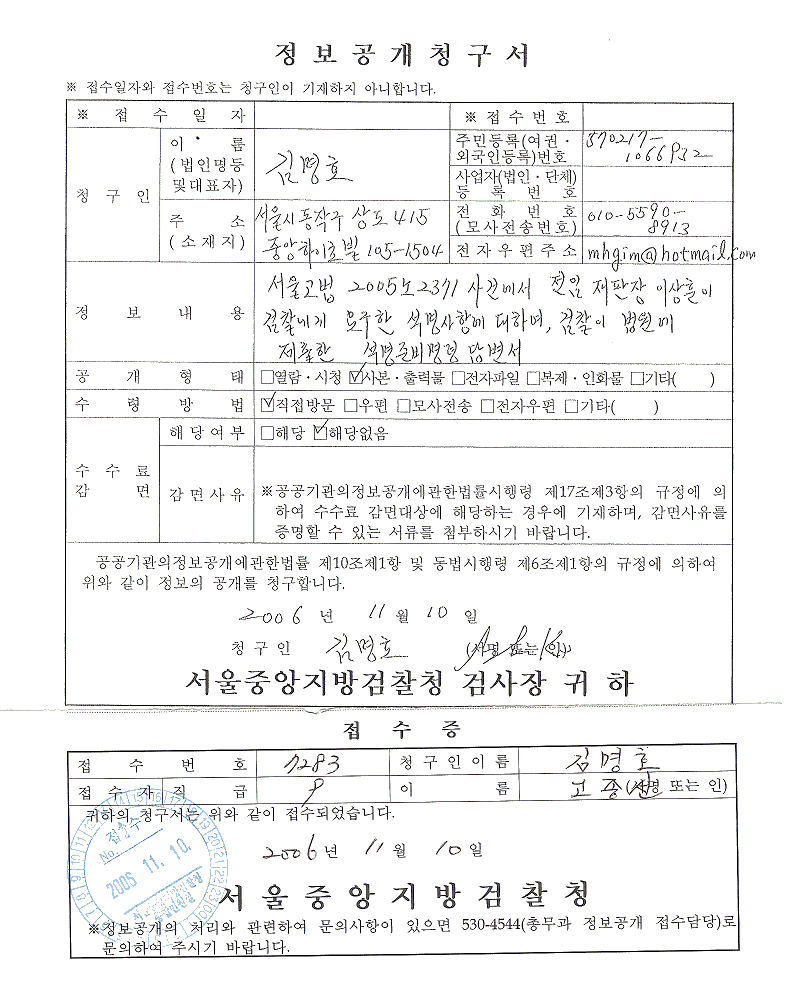 정 보 공 개 청 구 서
※ 접수일자와 접수번호는 청구인이 기재하지 아니합니다.
※ 접 수 일 자 ※ 접 수 번 호
청 구 인
이 름
(법인명등
및대표자)
김명호
주민등록(여권·
외국인등록)번호
570217-
1066932
사업자(법인·단체)
등 록 번 호
주 소
(소재지)
서울시 동작구 상도 415
중앙하이츠빌 105-1504
전 화 번 호
(모사전송번호)
010-5590-
8913
전자우편주소 mhgim@hotmail.com
정 보 내 용
서울고법 2005노2371 사건에서 전임 재판장 이상훈이
검찰에게 요구한 석명사항에 대하며, 검찰이 법원에
제출한 석명준비명령 답변서
공 개 형 태 □열람·시청 ☑사본·출력물 □전자파일 □복제·인화물 □기타( )
수 령 방 법 ☑직접방문 □우편 □모사전송 □전자우편 □기타( )
수 수 료
감 면
해당여부 □해당 ☑해당없음
감면사유
※공공기관의정보공개에관한법률시행령 제17조제3항의 규정에 의
하여 수수료 감면대상에 해당하는 경우에 기재하며, 감면사유를
증명할 수 있는 서류를 첨부하시기 바랍니다.
공공기관의정보공개에관한법률 제10조제1항 및 동법시행령 제6조제1항의 규정에 의하여
위와 같이 정보의 공개를 청구합니다.
2006 년 11 월 10 일
청 구 인 김명호 (서명 또는 인)
서울중앙지방검찰청 검사장 귀 하
접 수 증
접 수 번 호 7283 청구인이름 김명호
접 수 자 직 급 9 이 름 (서명 또는 인)
귀하의 청구서는 위와 같이 접수되었습니다.
접수
No.
2006. 11. 10.
2006 년 11 월 10 일
서 울 중 앙 지 방 검 찰 청
※정보공개의 처리와 관련하여 문의사항이 있으면 530-4544(총무과 정보공개 접수담당)로
문의하여 주시기 바랍니다.